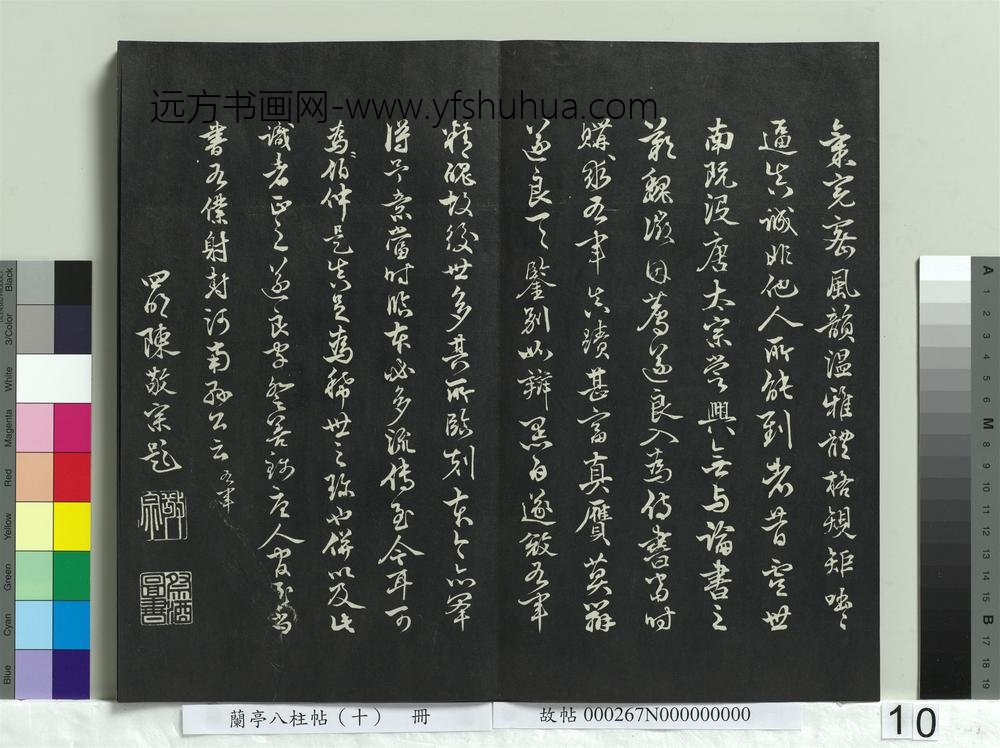 远方书画网-www.yfshuhua.com
氣完密風韻溫雅體格規矩
逼真誠非他人所能到者昔虞世
南既沒唐太宗嘗興無与論書之
歎魏徵因薦遂良入為侍書當时
購求右軍真蹟甚富真贗莫辨
遂良一一鑒别如辯黑白遂敓右軍
精魄故後世多其所臨刻本今亦罕
得予意當时臨本必多流传至今耳可
為伯仲是真足為稀世之珍也併以及此
識者正之遂良字登善錢唐人官至尚
書右僕射封河南縣公云 右軍
四明陳敬宗題
敬宗
祭酒圖書
蘭亭八柱帖(十) 冊
故帖 000267N000000000
10
Blue
Cyan
Green
Yellow
Red
Magenta
White
3/Color
Black
A
1
2
3
4
5
6
M
8
9
10
11
12
13
14
15
B
17
18
19